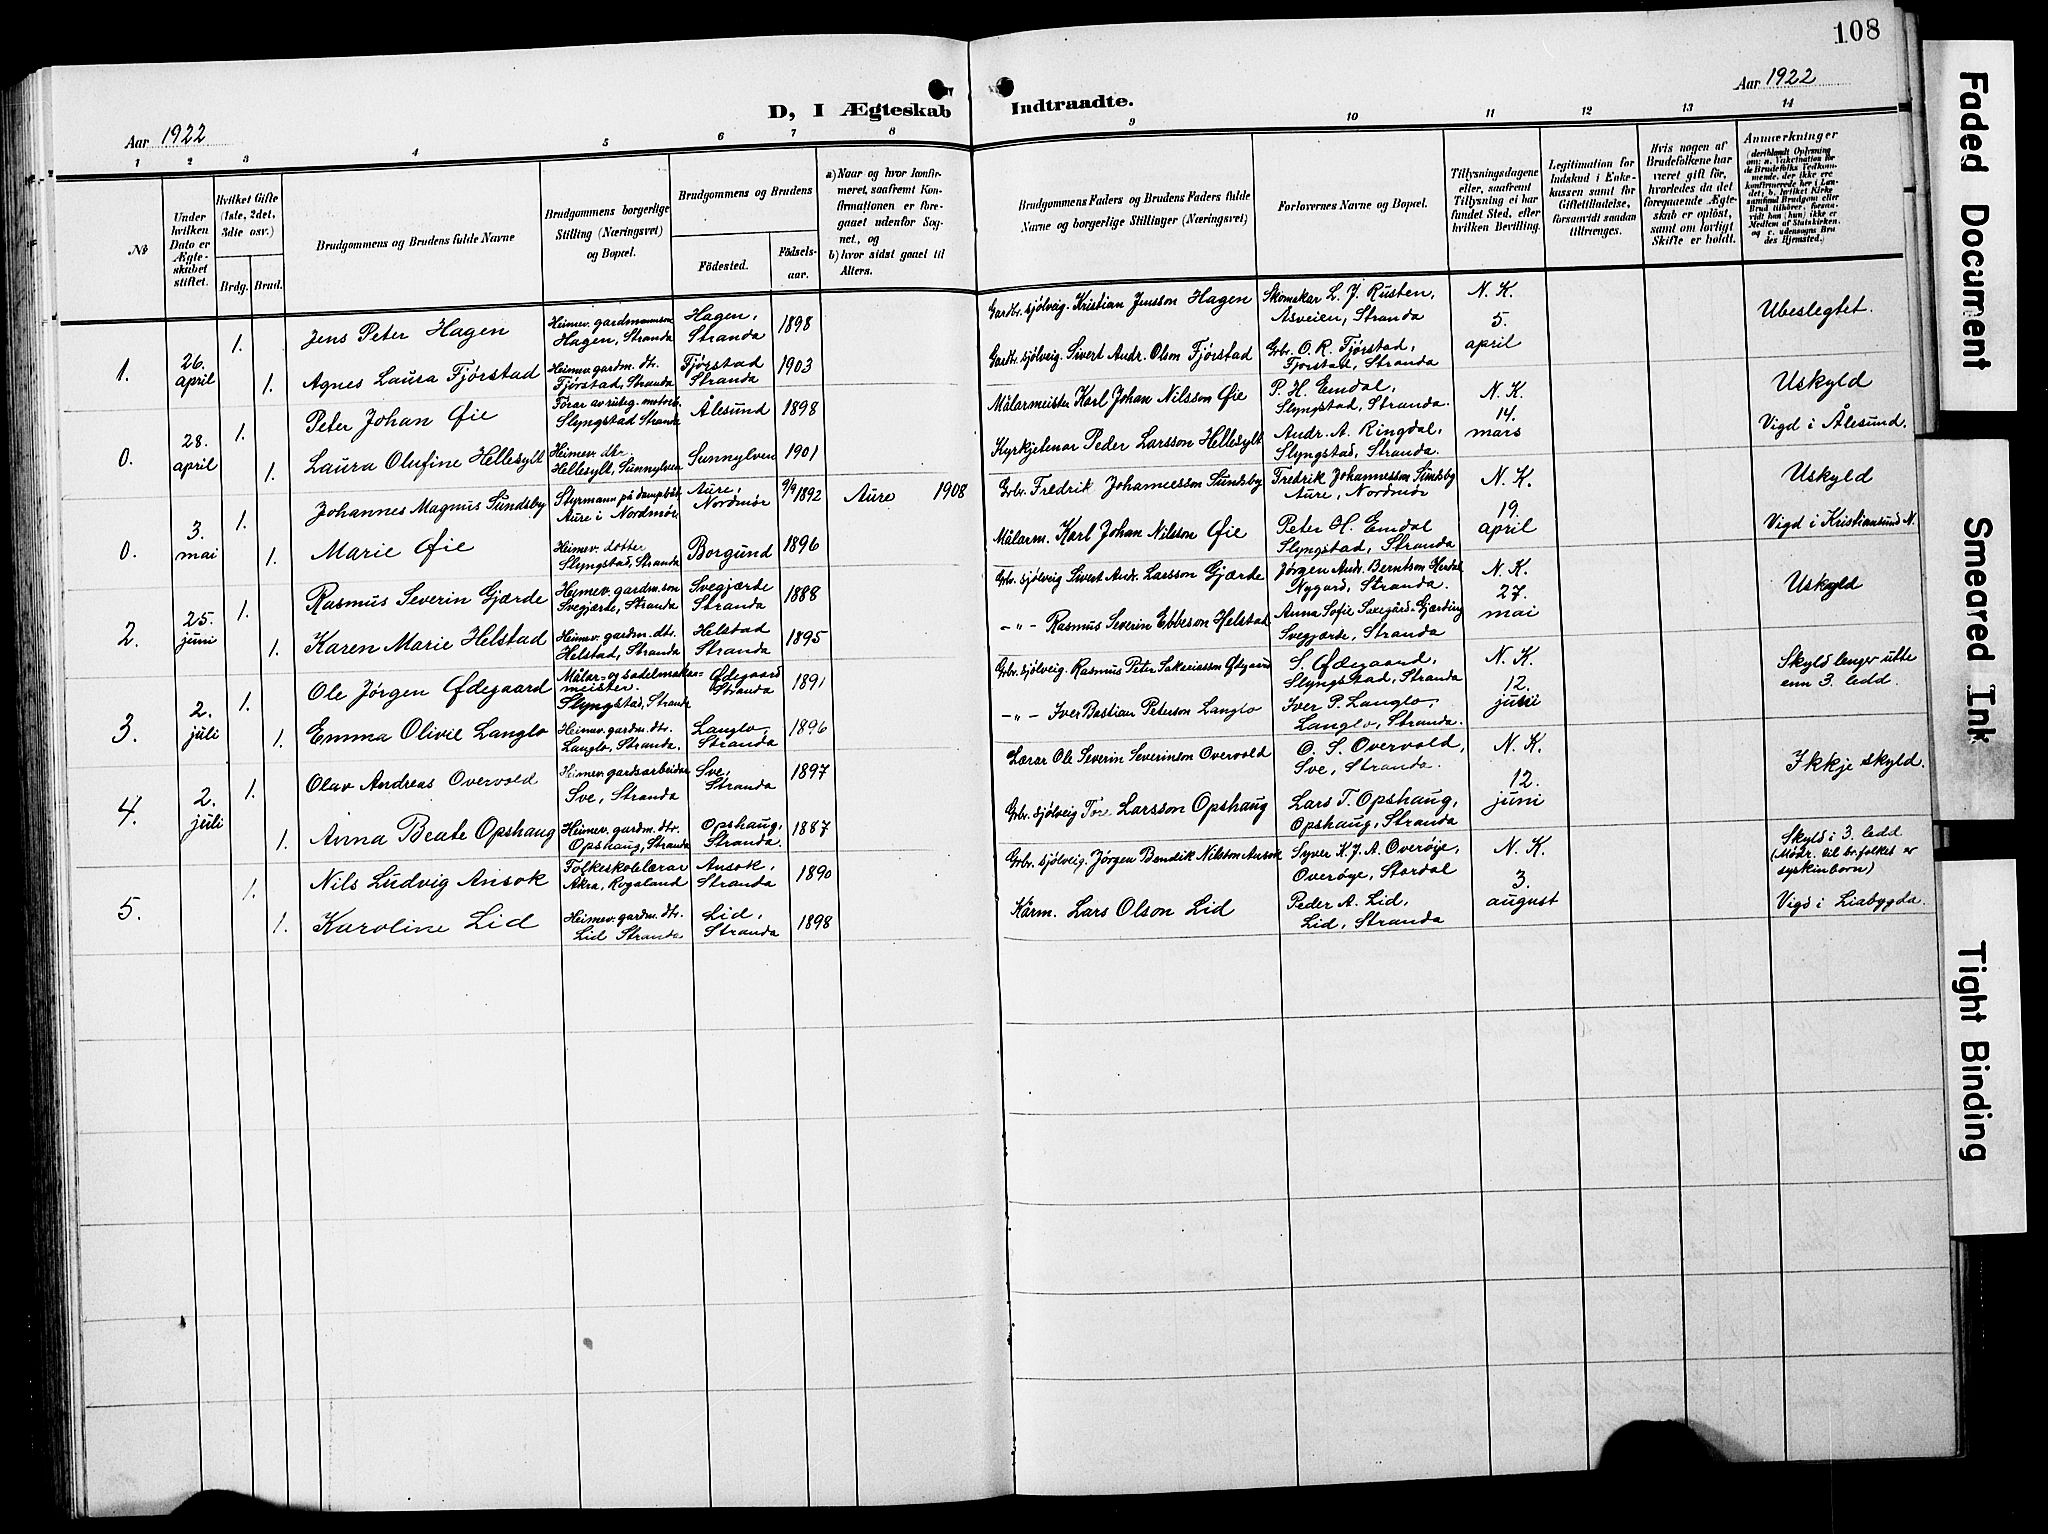 108
Aar 1922
Aar 1922
D, I Ægteskab Indtraadte.
1 2 3 4 5 6 7 8 9 10 11 12 13 14
No
Under hvilken Dato er Ægteskabet stiftet.
Hvilket Gifte (1ste, 2det, 3die osv.)
Brdg. Brud.
Brudgommens og Brudens fulde Navne
Brudgommens borgerlige Stilling (Næringsvei) og Bopæl.
Brudgommens og Brudens
Födested.
Födselsaar.
a) Naar og hvor konfirmeret, saafremt Konfirmationen er foregaaet udenfor Sognet, og
b) hvor sidst gaaet til Alters.
Brudgommens Faders og Brudens Faders fulde Navne og borgerlige Stillinger (Næringsvei)
Forlovernes Navne og Bopæl.
Tillysningsdagene eller, saafremt Tillysning ei har fundet Sted, efter hvilken Bevilling.
Legitimation for Indskud i Enkekassen samt for Giftetilladelse, forsaavidt saadan tiltrænges.
Hvis nogen af Brudefolkene har været gift för, hvorledes da det foregaaende Ægteskab er oplöst, samt om lovligt Skifte er holdt.
Anmærkninger (deriblandt Oplysning om: a. Vakcination for de Brudefolks Vedkommende, der ikke ere konfirmerede her i Landet; b. hvilket Kirkesamfund Brudgom eller Brud tilhörer, forsaavidt han (hun) ikke er Medlem af Statskirken, og c. udensogns Brudes Hjemsted.)
1. 26. april
1. Jens Peter Hagen Heimev. gardmannsson Hagen, Stranda Hagen, Stranda 1898 Gardbr. sjølveig. Kristian Jensson Hagen Skomakar L. J. Rusten, Åsveien, Stranda N. K. 5. april Ubeslegtet.
1. Agnes Laura Fjørstad Heimev. gardm. dtr. Fjørstad, Stranda Fjørstad Stranda 1903 Gardbr. sjølveig. Sivert Andr. Olson Fjørstad Gbr. O. R. Fjørstad, Fjørstad, Stranda
0. 28. april
1. Peter Johan Øie Førar av ruteg. motorb. Slyngstad Stranda Ålesund 1898 Målarmeister Karl Johan Nilsson Øie P. H. Emdal, Slyngstad, Stranda. N. K. 14. mars Uskyld
1. Laura Olufine Hellesylt Heimev. dtr. Hellesylt, Sunnylven Sunnylven 1901 Kyrkjetenar Peder Larsson Hellesylt Andr. A. Ringdal, Slyngstad, Stranda. Vigd i Ålesund.
0. 3. mai
1. Johannes Magnus Sundsby Styrmann på dampbåt Aure i Nordmøre Aure, Nordmør 9/9 1892 Aure 1908 Gbr. Fredrik Johannesson Sundsby Fredrik Johannesson Sundsby Aure, Nordmør N. K. 19. april Uskyld
1. Marie Øie Heimev. dotter Slyngstad, Stranda Borgund 1896 Målarm. Karl Johan Nilsson Øie Peter H. Emdal Slyngstad, Stranda Vigd i Kristiansund N.
2. 25. juni
1. Rasmus Severin Gjærde Heimev. gardm. son Svegjærde, Stranda Svegjærde Stranda 1888 Gbr. sjølveig Sivert Andr. Larsson Gjærde Jørgen Andr. Berntson Herdal Nygard, Stranda. N. K. 27. mai Uskyld
1. Karen Marie Helstad Heimev. gardm. dtr. Helstad, Stranda Helstad Stranda 1895 –"– Rasmus Severin Ebbeson Helstad Anna Sofie Saxegård-Gjærding Svegjærde, Stranda
3. 2. juli
1. Ole Jørgen Ødegaard Målar- og sadelmakarmeister. Slyngstad, Stranda Ødegaard Stranda 1891 Gbr. sjølveig. Rasmus Peter Sakariasson Ødegaard S. Ødegaard, Slyngstad, Stranda N. K. 12. juni Skyld lenger utte enn 3. ledd.
1. Emma Olivie Langlo Heimev. gardm. dtr. Langlo, Stranda. Langlo, Stranda 1896 –"– Iver Bastian Peterson Langlo Iver P. Langlo, Langlo, Stranda.
4. 2. juli
1. Olav Andreas Overvold Heimev. gardsarbeidar Sve, Stranda Sve, Stranda 1897 Lærar Ole Severin Severinson Overvold O. S. Overvold, Sve, Stranda. N. K. 12. juni Ikkje skyld.
1. Anna Beate Opshaug Heimev. gardm. dtr. Opshaug, Stranda Opshaug, Stranda. 1887 Gbr. sjølveig Tore Larsson Opshaug Lars T. Opshaug, Opshaug, Stranda
5.
1. Nils Ludvig Ansok Folkeskolelærar Åkra, Rogaland Ansok, Stranda 1890 Gbr. sjølveig. Jørgen Bendik Nilsson Ansok Syver K. J. A. Overøye, Overøye, Stordal N. K. 3. august Skyld i 3. ledd (Mødr. til br.folket er syskinborn)
1. Karoline Lid Heimev. gardm. dtr. Lid Stranda Lid, Stranda 1898 Kårm. Lars Olson Lid Peder A. Lid, Lid, Stranda Vigd i Liabygda.
Faded Document
Smeared Ink
Tight Binding